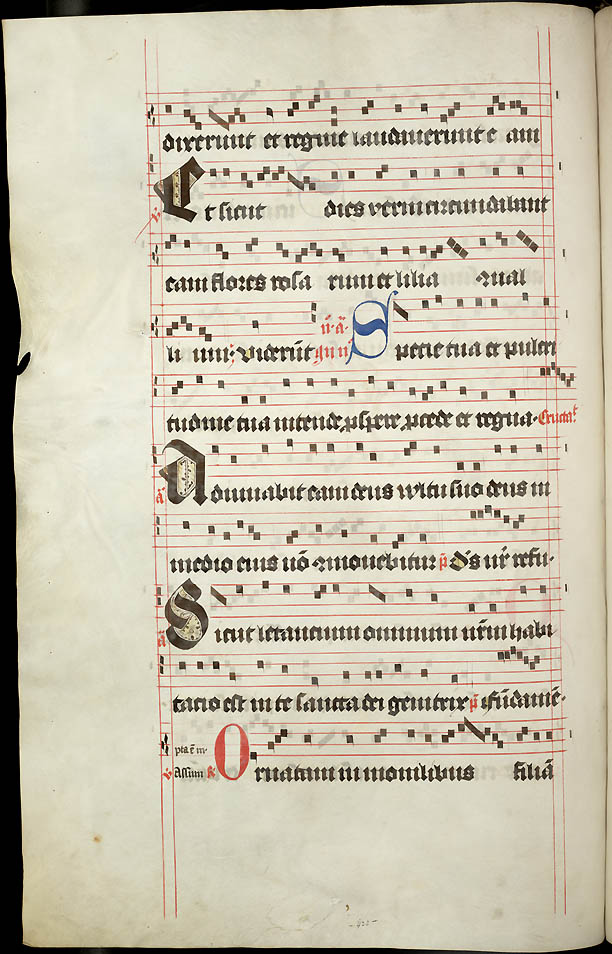 dixerunt et regine laudauerunt e am
Et sicut dies verni circundabant
eam flores rosa rum et lilia 9ual
li um. Viderūt
Specie tua et pulcri
tudine tua intende, prospere procede et regna. Eructat
Adiuuabit eam deus vultu suo deus in
medio eius nō 9mouebitur p̄ Ds nr̄ refu-
Sicut letancium omnium nr̄m habi
tacio est in te sancta dei genitrix p̄ Fūdamē-
Ornatam in monilibus filiā